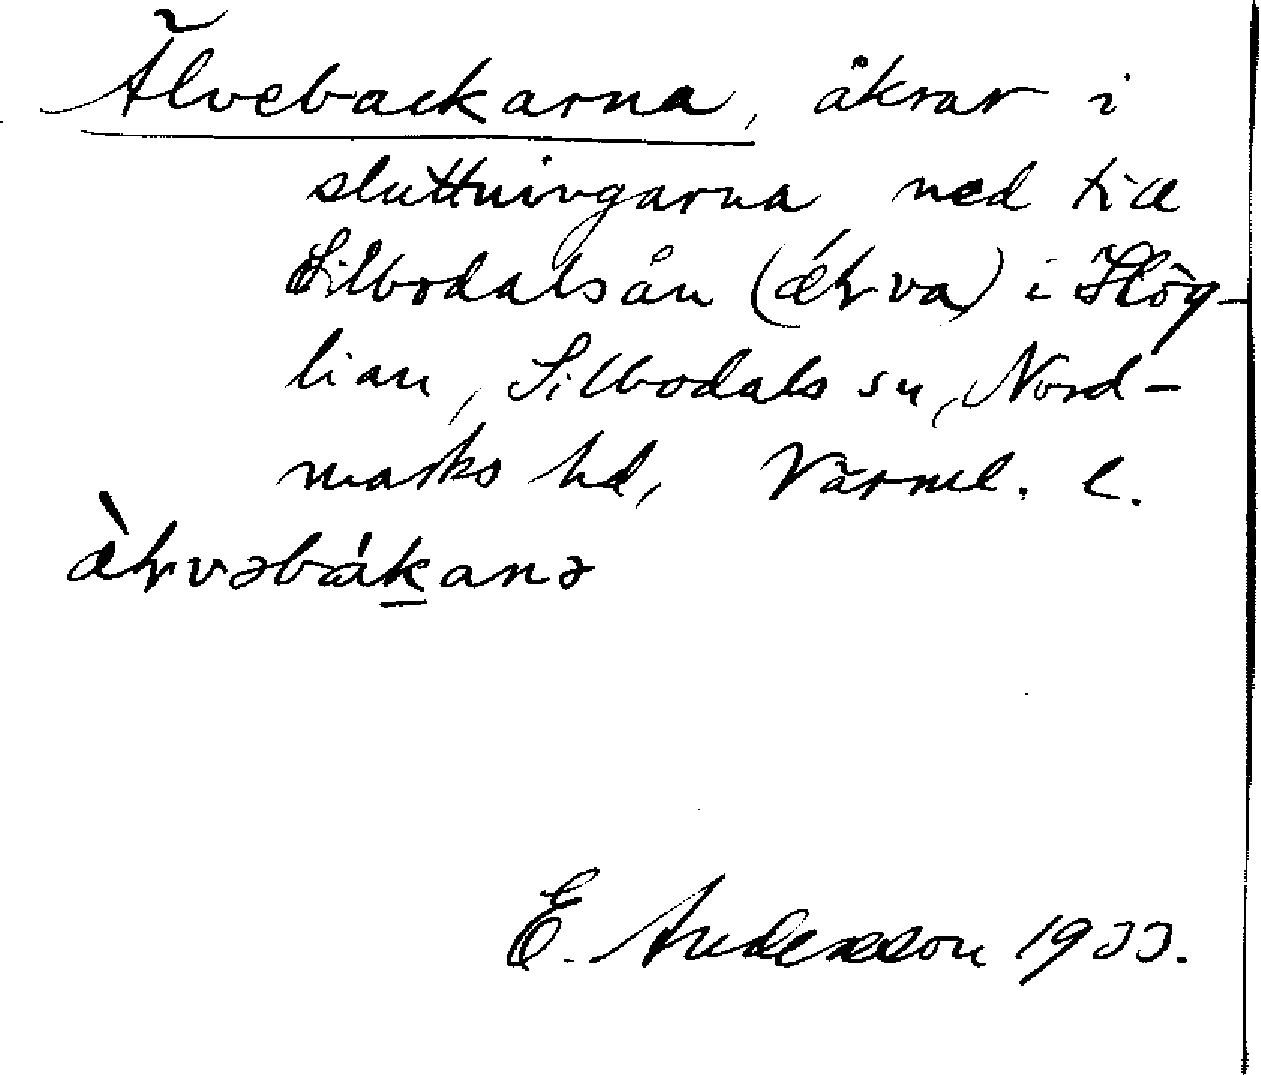 Älvebackarna, åkrar i
sluttningarna ned till
Silbodalsån (ǽƚva) i Hög-
lian, Silbodals sn, Nord-
marks hd, Värml. l.
æ̀ƚvəbákanə
E. Andersson 1933.